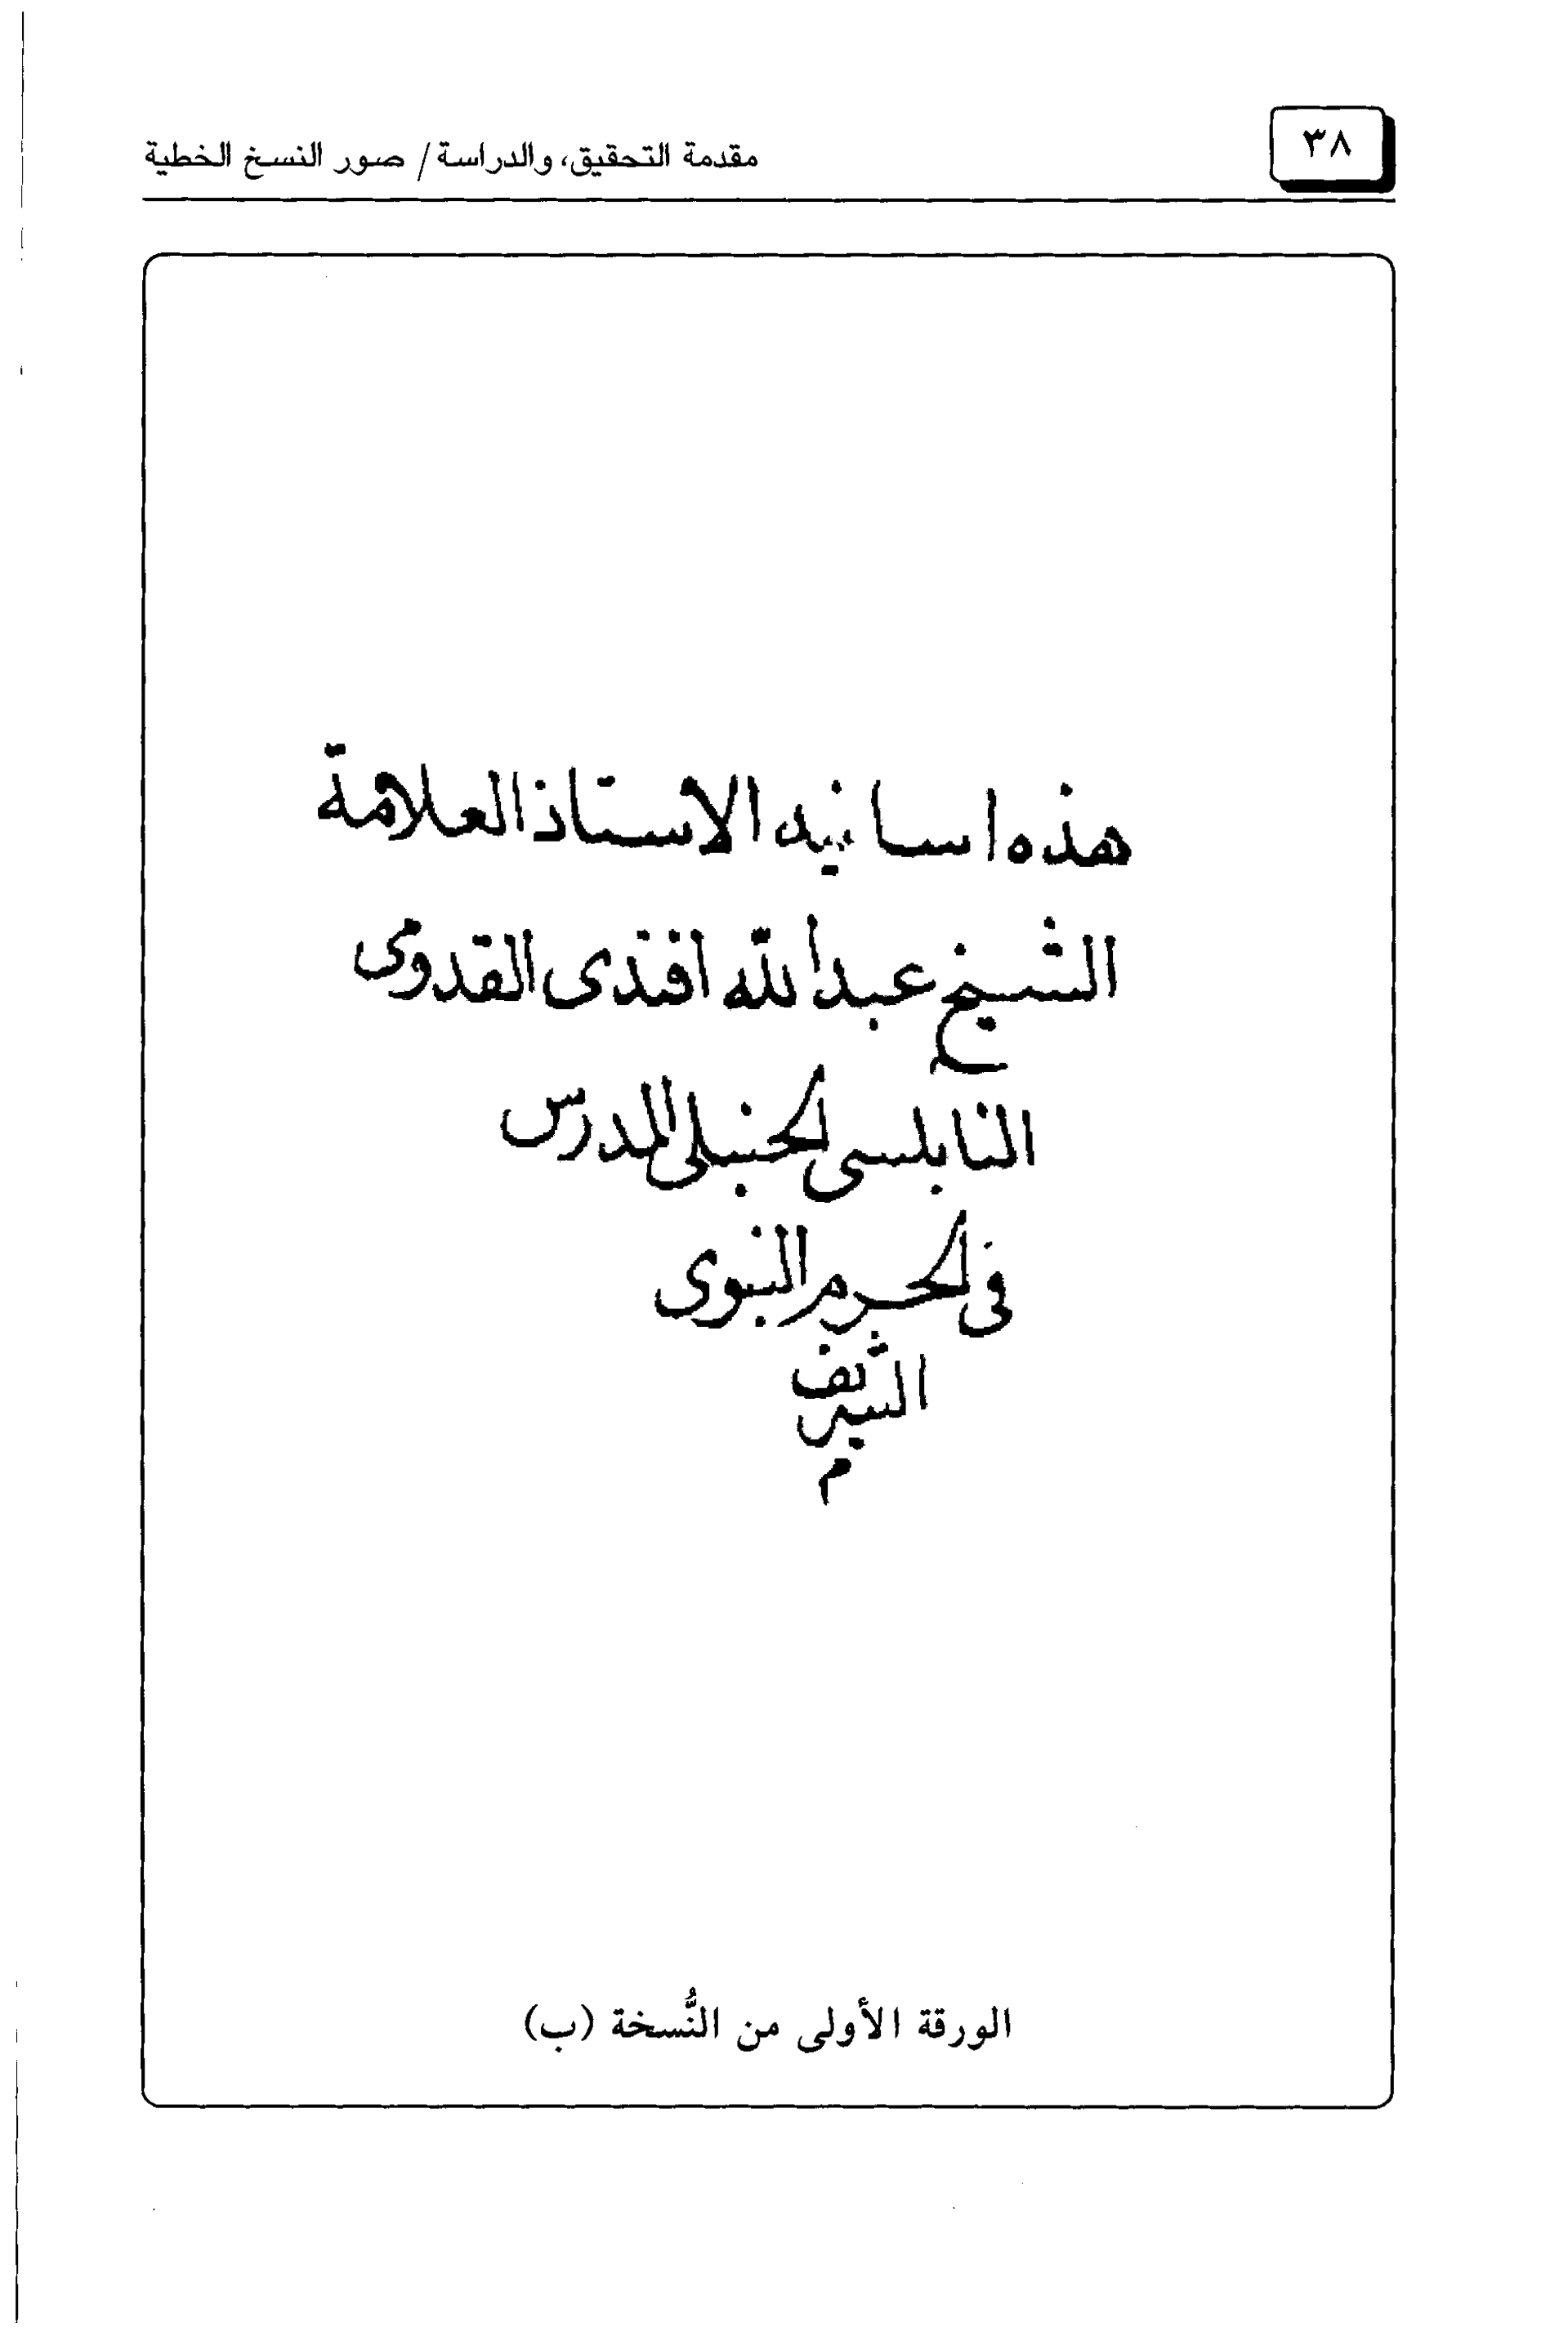 ٣٨
مقدمة التحقيق، والدراسة / صور النسخ الخطية
هذه اسانيد الاستاذ العلامة
الشيخ عبد الله افندى القدومى
النابلسى الحنبلى المدرس
فى الحرم النبوى
الشريف
م
الورقة الأولى من النُّسخة (ب)